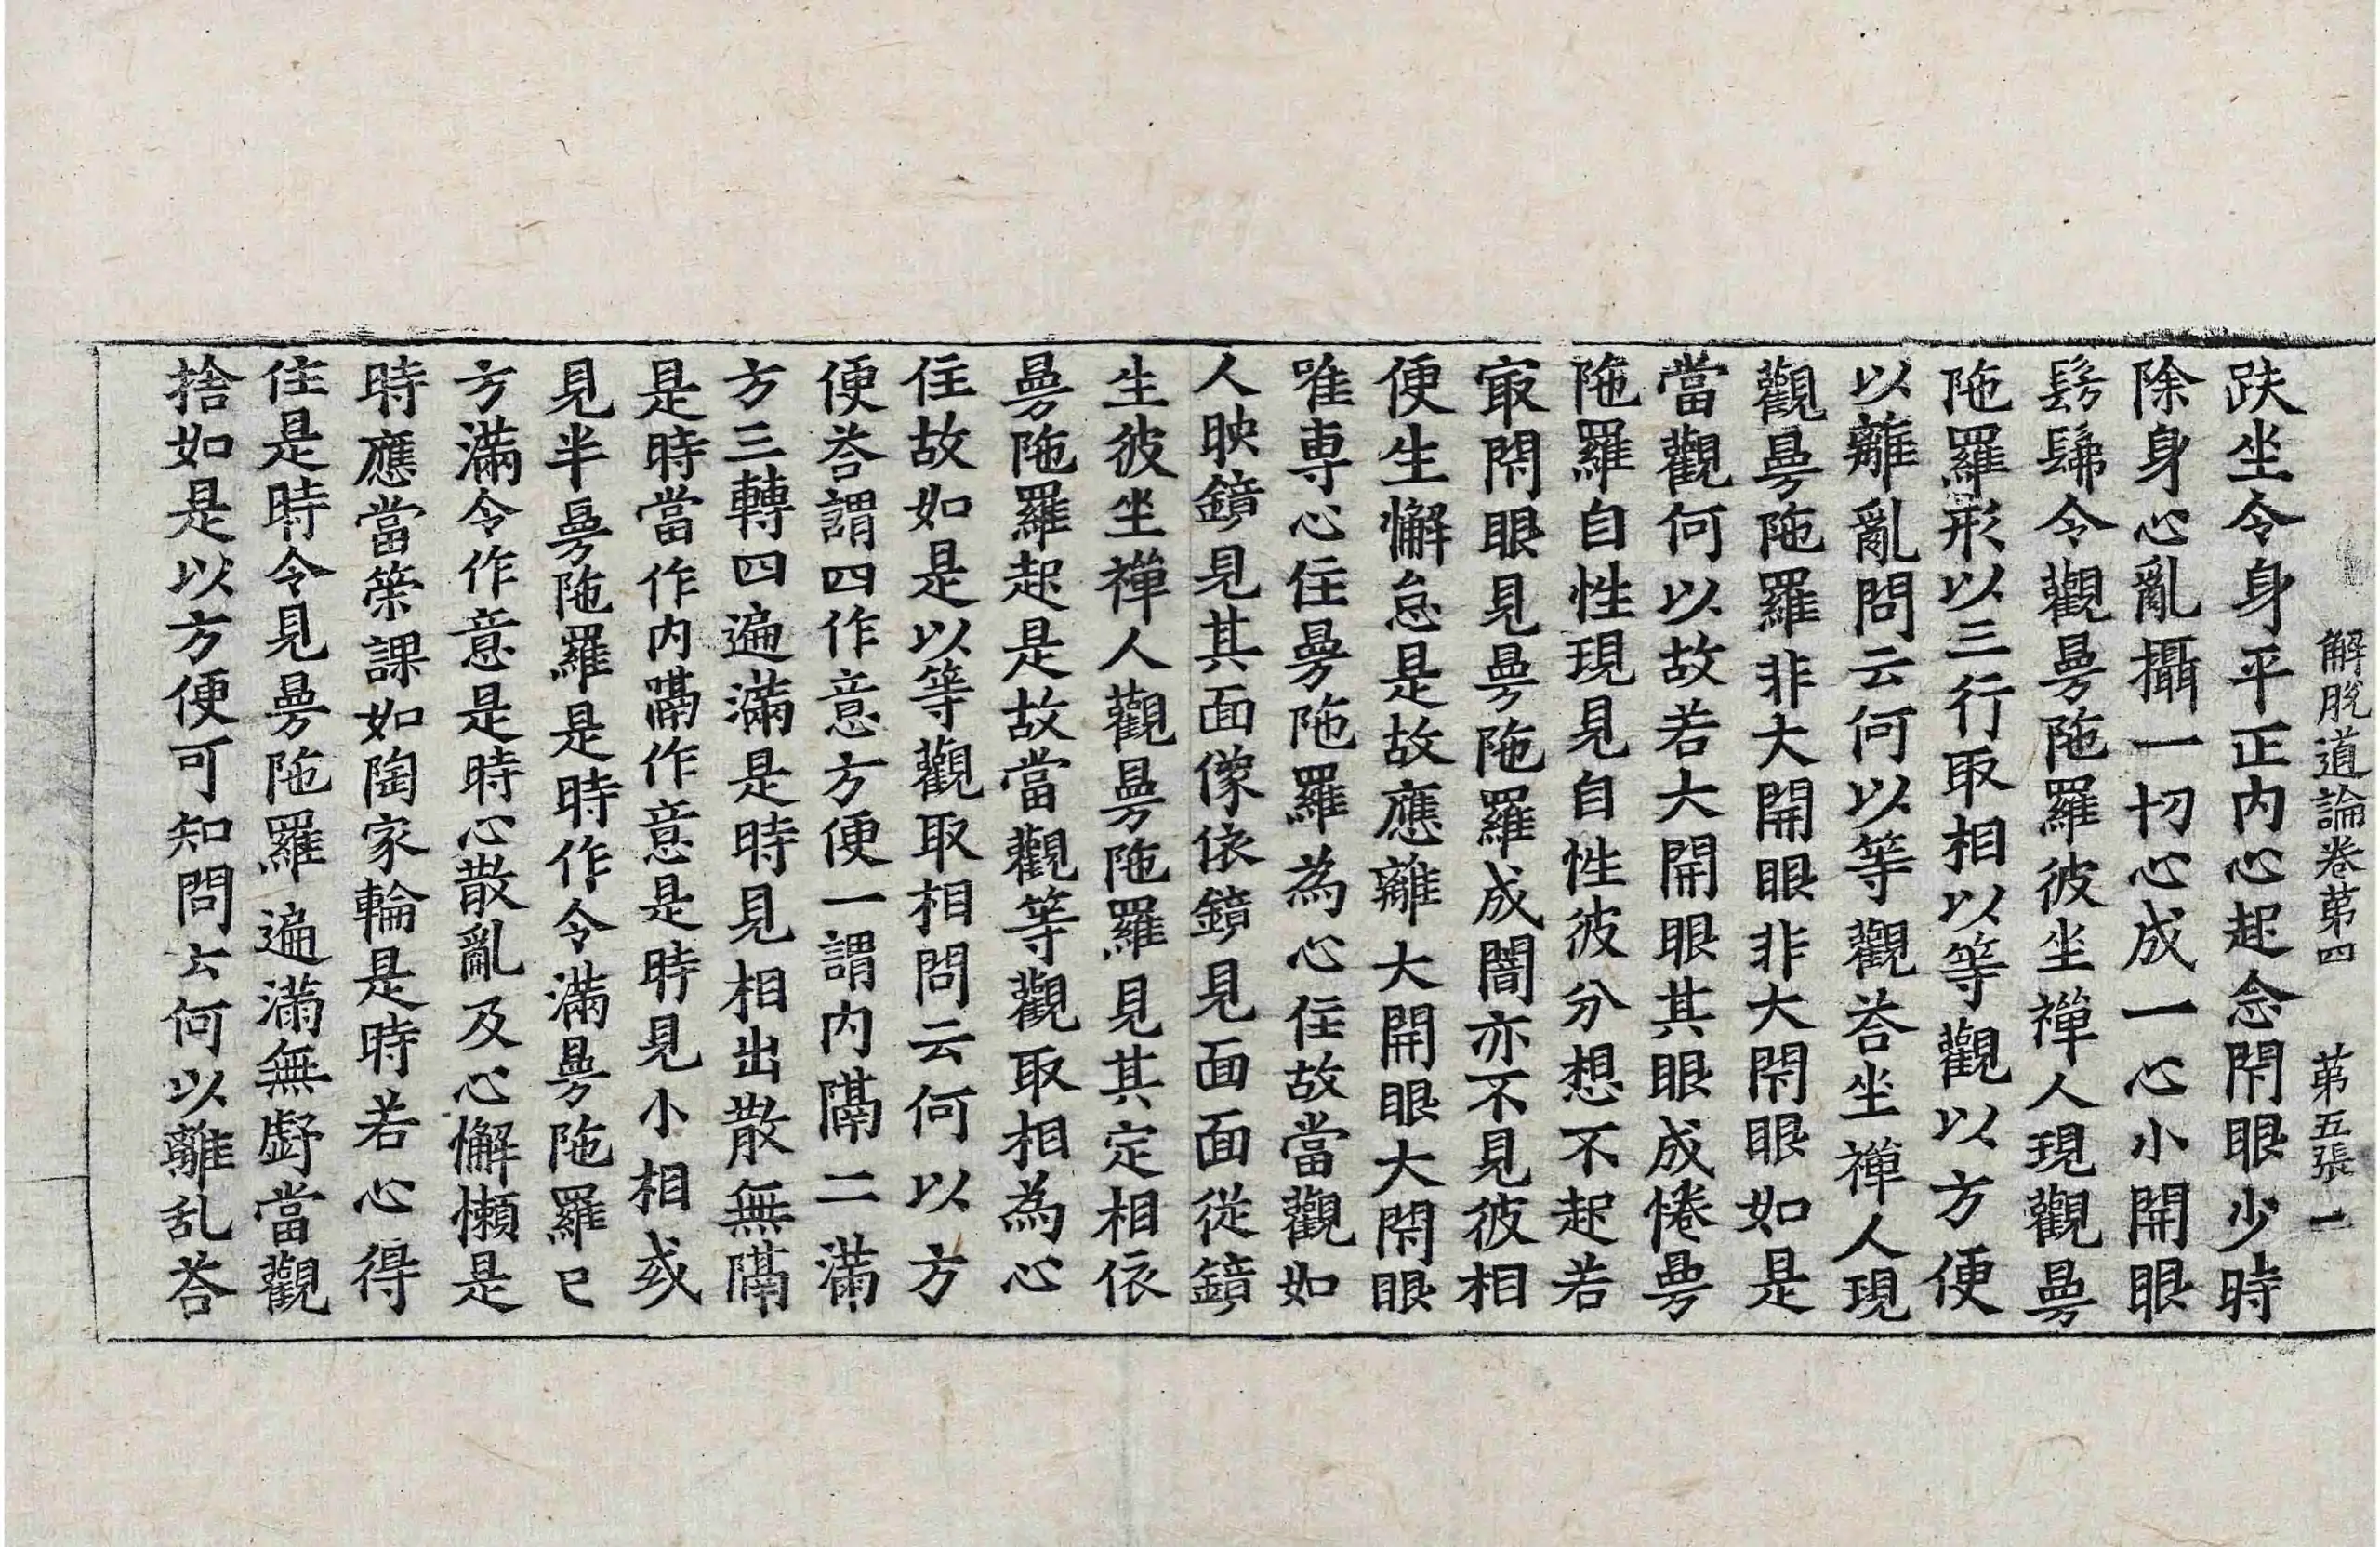 解脫道論卷苐四 苐五張 一
趺坐令身平正内心起念閇眼少時
除身心亂攝一切心成一心小開眼
髣髴令觀曼陁羅彼坐禪人現觀曼
陁羅形以三行取相以等觀以方便
以離亂問云何以等觀荅坐禪人現
觀曼陁羅非大開眼非大閇眼如是
當觀何以故若大開眼其眼成惓曼
陁羅自性現見自性彼分想不起若
㝡閇眼見曼陁羅成闇亦不見彼相
便生懈怠是故應離大開眼大閇眼
唯専心住曼陁羅為心住故當觀如
人映鏡見其面像依鏡見面面從鏡
生彼坐禪人觀曼陁羅見其定相依
曼陁羅起是故當觀等觀取相為心
住故如是以等觀取相問云何以方
便荅謂四作意方便一謂内隔二滿
方三轉四遍滿是時見相出散無隔
是時當作内隔作意是時見小相或
見半曼陁羅是時作令滿曼陁羅已
方滿令作意是時心散亂及心懈懶是
時應當策課如陶家輪是時若心得
住是時令見曼陁羅遍滿無虧當觀
捨如是以方便可知問云何以離乱荅